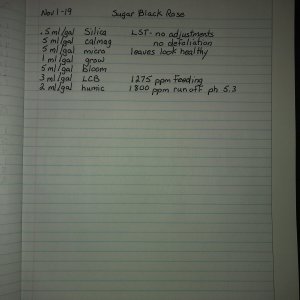 Nov 1-19 Sugar Black Rose
.5 ml/gal Silica LST- no adjustments
5 ml/gal calmag no defoliation
5 ml/gal micro leaves look healthy
1 ml/gal grow
5 ml/gal Bloom
3 ml/gal LCB 1275 ppm feeding
2 ml/gal humic 1800 ppm run off ph 5.3